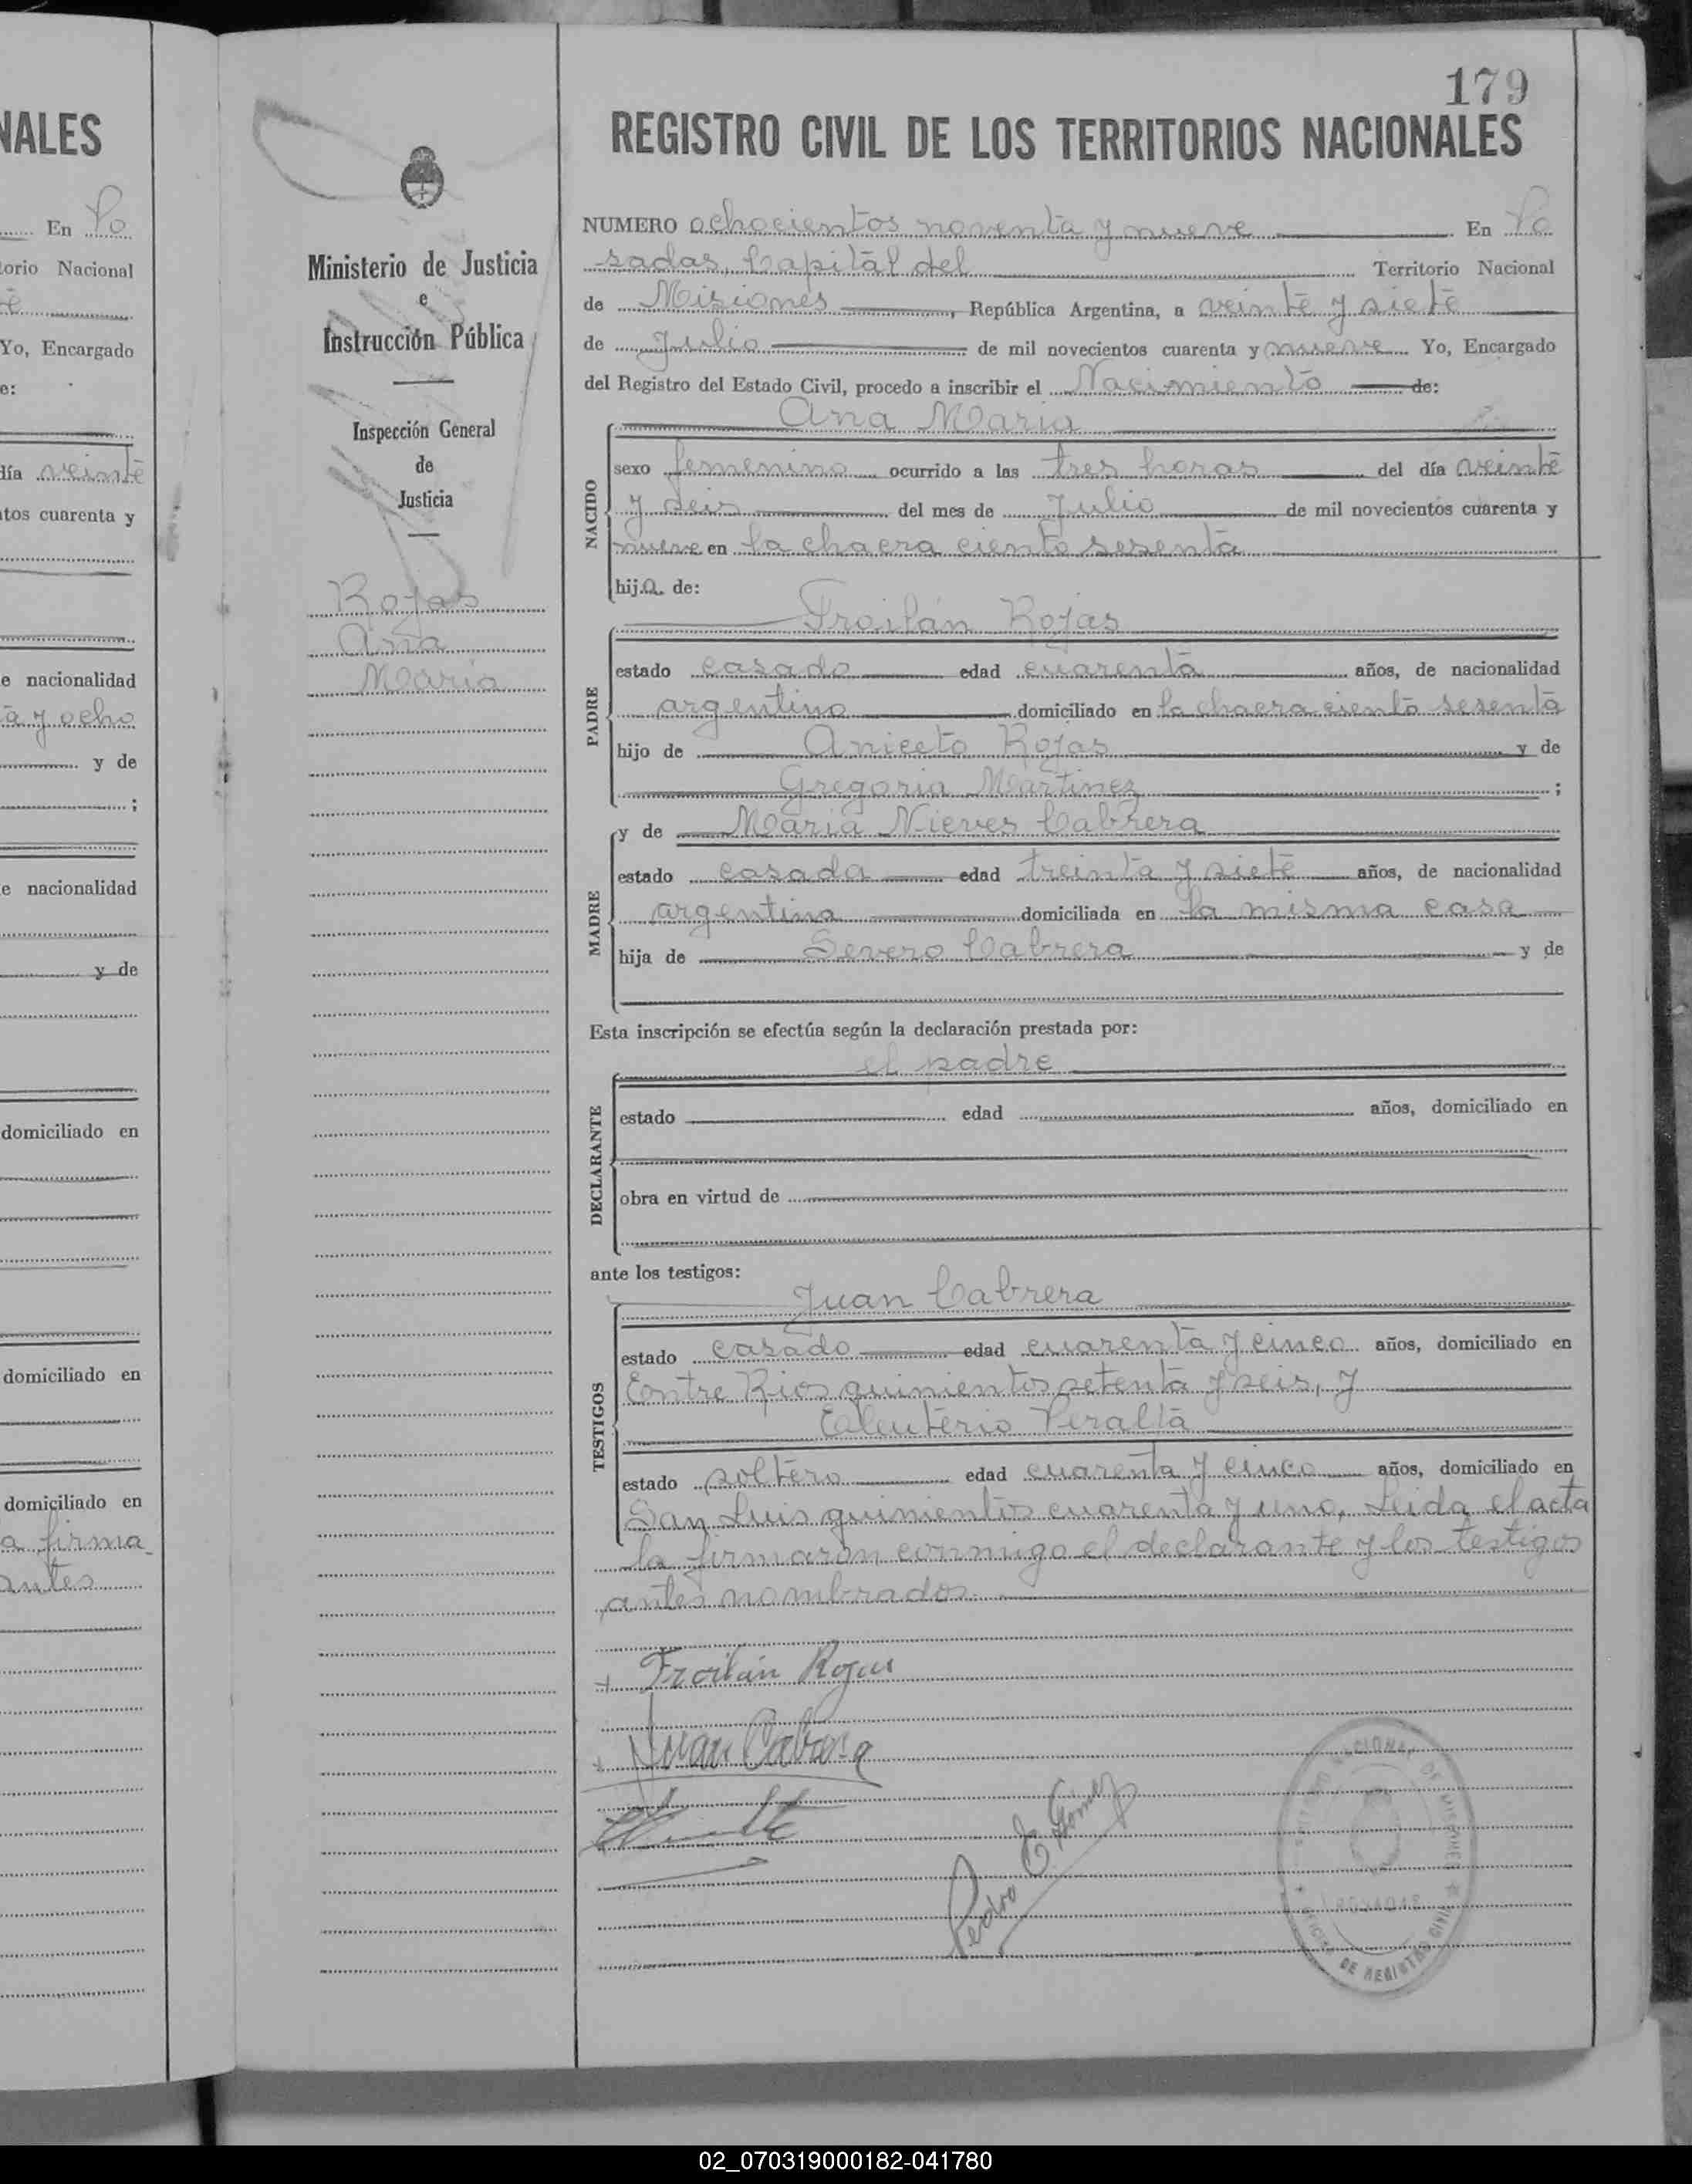 NALES
En Po
torio Nacional
Yo, Encargado
e:
día veinte
tos cuarenta y
e nacionalidad
a y ocho
y de
;
e nacionalidad
y de
domiciliado en
domiciliado en
domiciliado en
a firma
antes
Ministerio de Justicia
e
Instrucción Pública
Inspección General
de
Justicia
Rojas
Ana
Maria
179
REGISTRO CIVIL DE LOS TERRITORIOS NACIONALES
NUMERO ochocientos noventa y nueve En Po
sadas, Capital del Territorio Nacional
de Misiones, República Argentina, a veinte y siete
de Julio de mil novecientos cuarenta y nueve Yo, Encargado
del Registro del Estado Civil, procedo a inscribir el Nacimiento de:
Ana Maria
NACIDO
sexo femenino ocurrido a las tres horas del día veinte
y seis del mes de Julio de mil novecientos cuarenta y
nueve en la chacra ciento sesenta
hija de:
Froilán Rojas
PADRE
estado casado edad cuarenta años, de nacionalidad
argentino domiciliado en la chacra ciento sesenta
hijo de Aniceto Rojas y de
Gregoria Martinez ;
MADRE
y de Maria Nieves Cabrera
estado casada edad treinta y siete años, de nacionalidad
argentina domiciliada en la misma casa
hija de Severo Cabrera y de
Esta inscripción se efectúa según la declaración prestada por:
el padre
DECLARANTE
estado edad años, domiciliado en
obra en virtud de
ante los testigos:
Juan Cabrera
TESTIGOS
estado casado edad cuarenta y cinco años, domiciliado en
Entre Rios quinientos setenta y seis, y
Eleuterio Peralta
estado soltero edad cuarenta y cinco años, domiciliado en
San Luis quinientos cuarenta y uno, Leida el acta
la firmaron conmigo el declarante y los testigos
antes nombrados.
+ Froilán Rojas
+ Juan Cabrera
Pedro E. Gomez
NACIONAL DE MISIONES
OFICINA DE REGISTRO CIVIL
02_070319000182-041780